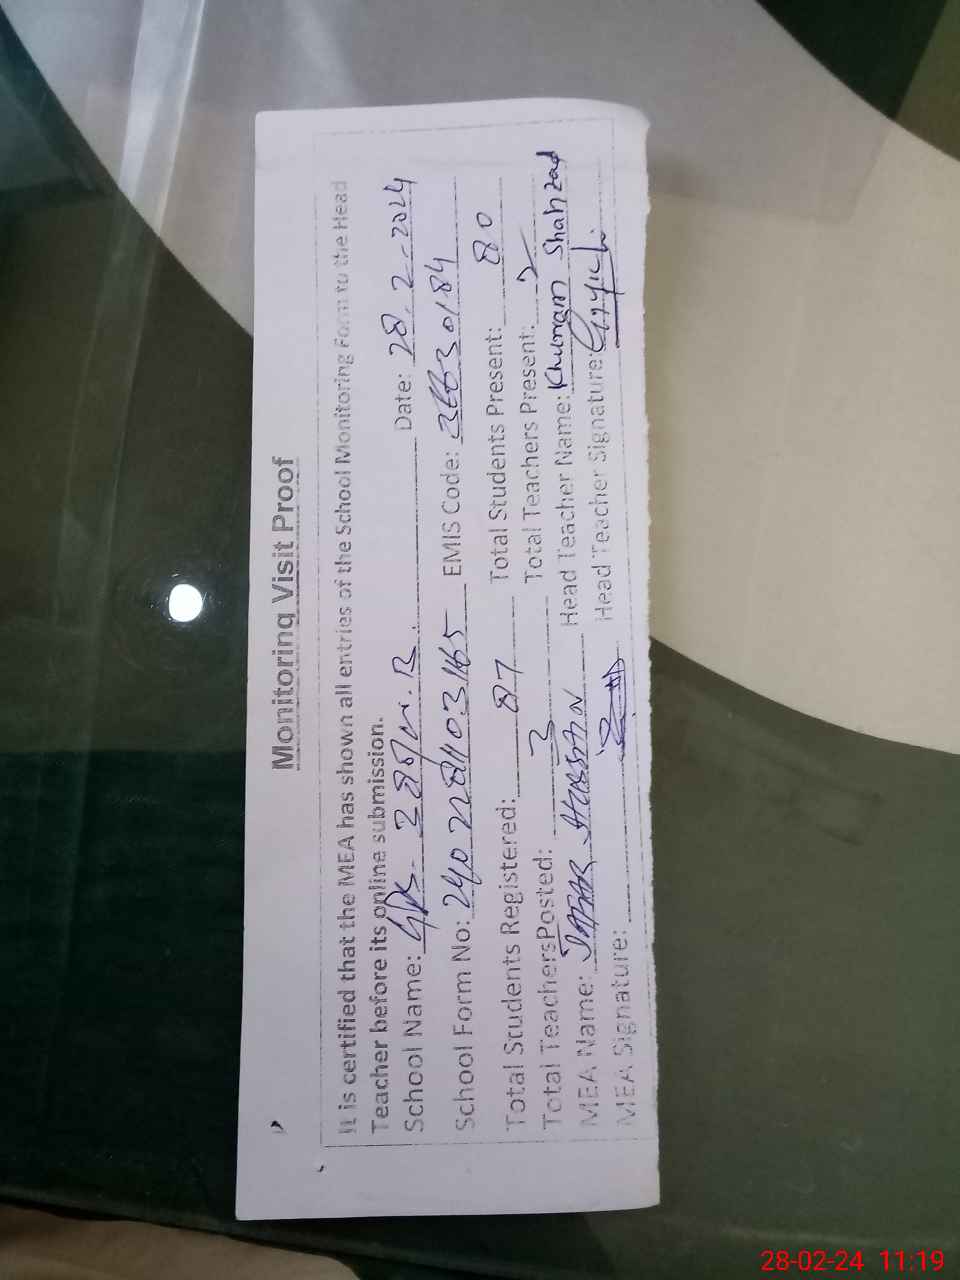 Monitoring Visit Proof
It is certified that the MEA has shown all entries of the School Monitoring Form to the Head
Teacher before its online submission.
School Name: GPS Date: 28.2-2024
School Form No: EMIS Code:
Total Students Registered: 87 Total Students Present: 80
Total TeachersPosted: Total Teachers Present: 2
MEA Name: JAFAR HUSSAIN Head Teacher Name: Khuram Shahzad
MEA Signature: Head Teacher Signature:
28-02-24 11:19